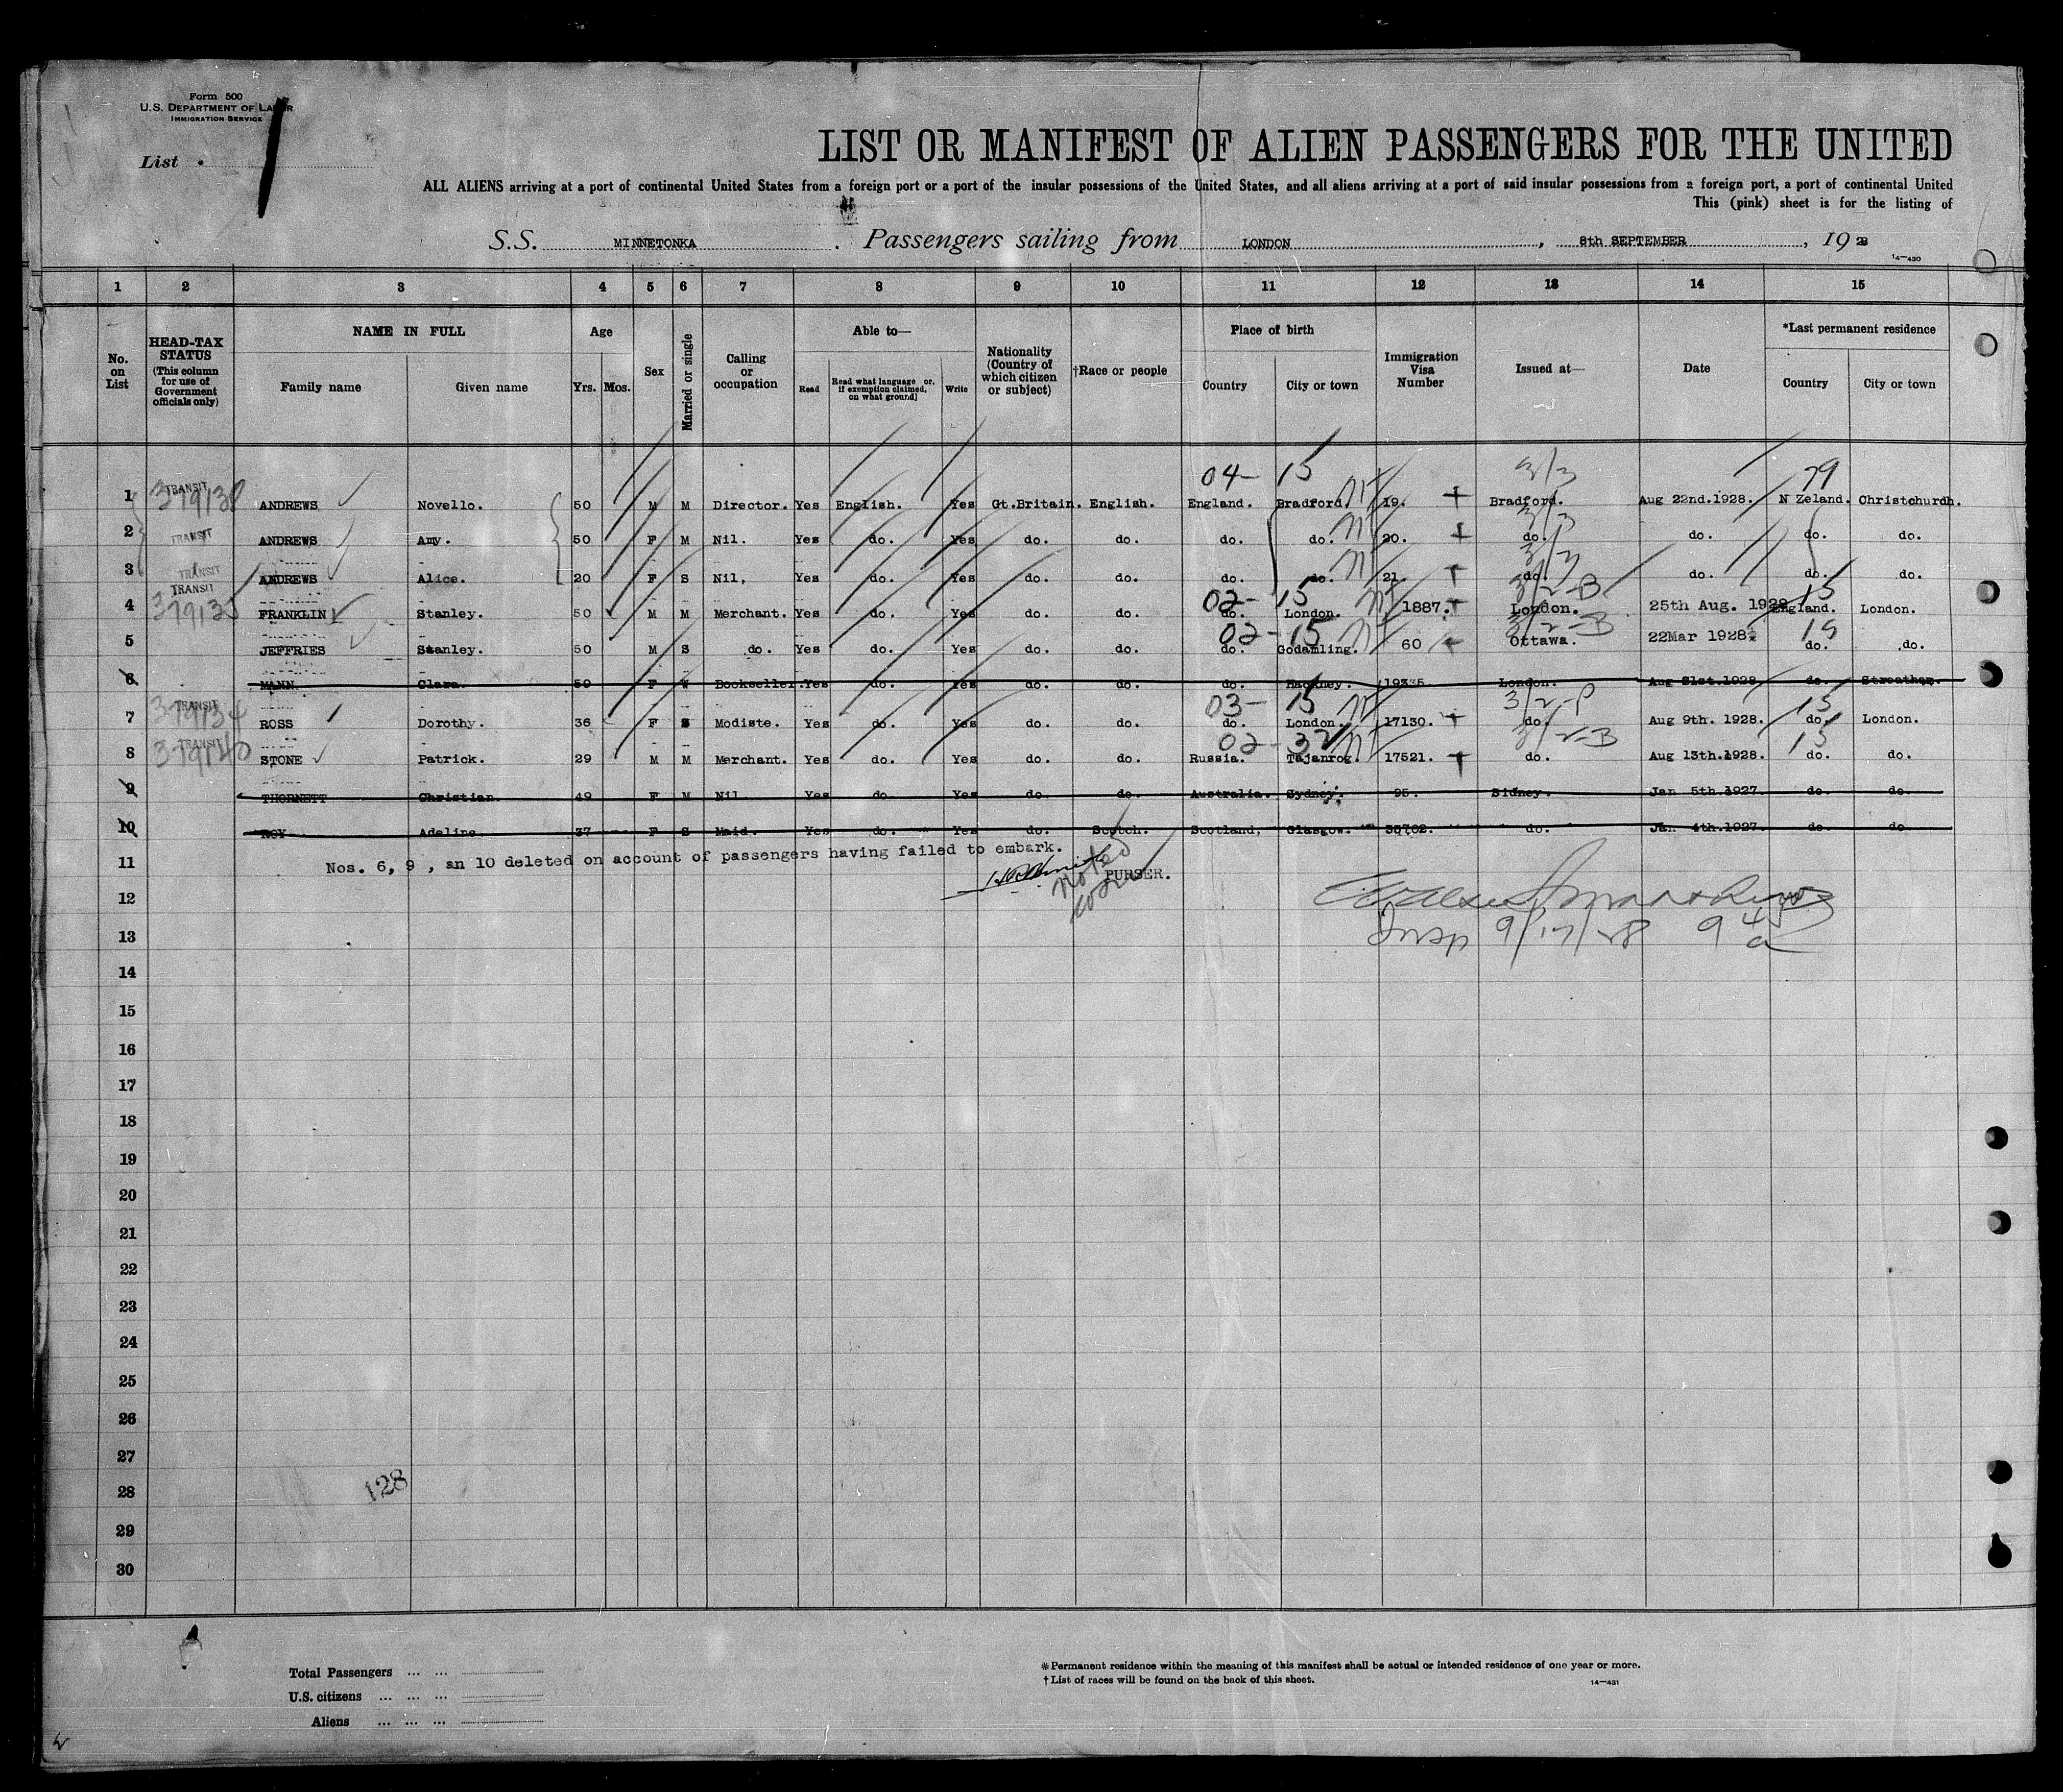 Form 500
U.S. DEPARTMENT OF LABOR
IMMIGRATION SERVICE
List
LIST OR MANIFEST OF ALIEN PASSENGERS FOR THE UNITED
ALL ALIENS arriving at a port of continental United States from a foreign port or a port of the insular possessions of the United States, and all aliens arriving at a port of said insular possessions from a foreign port, a port of continental United
This (pink) sheet is for the listing of
S.S. MINNETONKA . Passengers sailing from LONDON , 8th SEPTEMBER , 1928
14—430
1 2 3 4 5 6 7 8 9 10 11 12 13 14 15
No. on List HEAD-TAX STATUS (This column for use of Government officials only) NAME IN FULL Family name Given name Age Yrs. Mos. Sex Married or single Calling or occupation Able to— Read Read what language or, if exemption claimed, on what ground] Write Nationality (Country of which citizen or subject) †Race or people Place of birth Country City or town Immigration Visa Number Issued at— Date *Last permanent residence Country City or town
04- 15 3/3 79
1 TRANSIT 379138 ANDREWS Novello. 50 M M Director. Yes English. Yes Gt.Britain. English. England. Bradford. 19. Bradford. Aug 22nd.1928. N Zeland. Christchurch.
3/3
2 TRANSIT ANDREWS Amy. 50 F M Nil. Yes do. Yes do. do. do. do. 20. do. do. do. do.
3 TRANSIT ANDREWS Alice. 20 F S Nil, Yes do. Yes do. do. do. do. 21. do. do. do. do.
02- 15 3/2-B 15
4 TRANSIT FRANKLIN Stanley. 50 M M Merchant. Yes do. Yes do. do. do. London. 1887. London. 25th Aug. 1928 England. London.
02-15 3/2-B 15
5 JEFFRIES Stanley. 50 M S do. Yes do. Yes do. do. do. Godamling. 60 Ottawa. 22Mar 1928 do. do.
6 MANN. Clara. 50 F W Bookseller. Yes do. Yes do. do. do. Hackney. 19335 London. Aug 31st.1928 do. Streatham.
03- 15 3/2-P 15
7 TRANSIT 379134 ROSS Dorothy. 36 F S Modiste. Yes do. Yes do. do. do. London. 17130. do. Aug 9th. 1928. do. London.
02-32 3/2-B 15
8 TRANSIT 379140 STONE Patrick. 29 M M Merchant. Yes do. Yes do. do. Russia. Tajanrog. 17521. do. Aug 13th.1928. do. do.
9 THORNETT Christian. 49 F M Nil Yes do. Yes do. do. Australia. Sydney. 95. Sidney. Jan 5th.1927. do. do.
10 ROY Adeline 37 F S Maid. Yes do. Yes do. Scotch. Scotland, Glasgow. 35702. do. Jan 4th.1927. do. do
11 Nos. 6, 9 , an 10 deleted on account of passengers having failed to embark.
PURSER.
Noted
12
13 Insp 9/17/28 9 45 a
14
15
16
17
18
19
20
21
22
23
24
25
26
27
28
128
29
30
Total Passengers ... ...
U.S. citizens ... ... ...
Aliens ... ... ...
*Permanent residence within the meaning of this manifest shall be actual or intended residence of one year or more.
†List of races will be found on the back of this sheet.
14—431